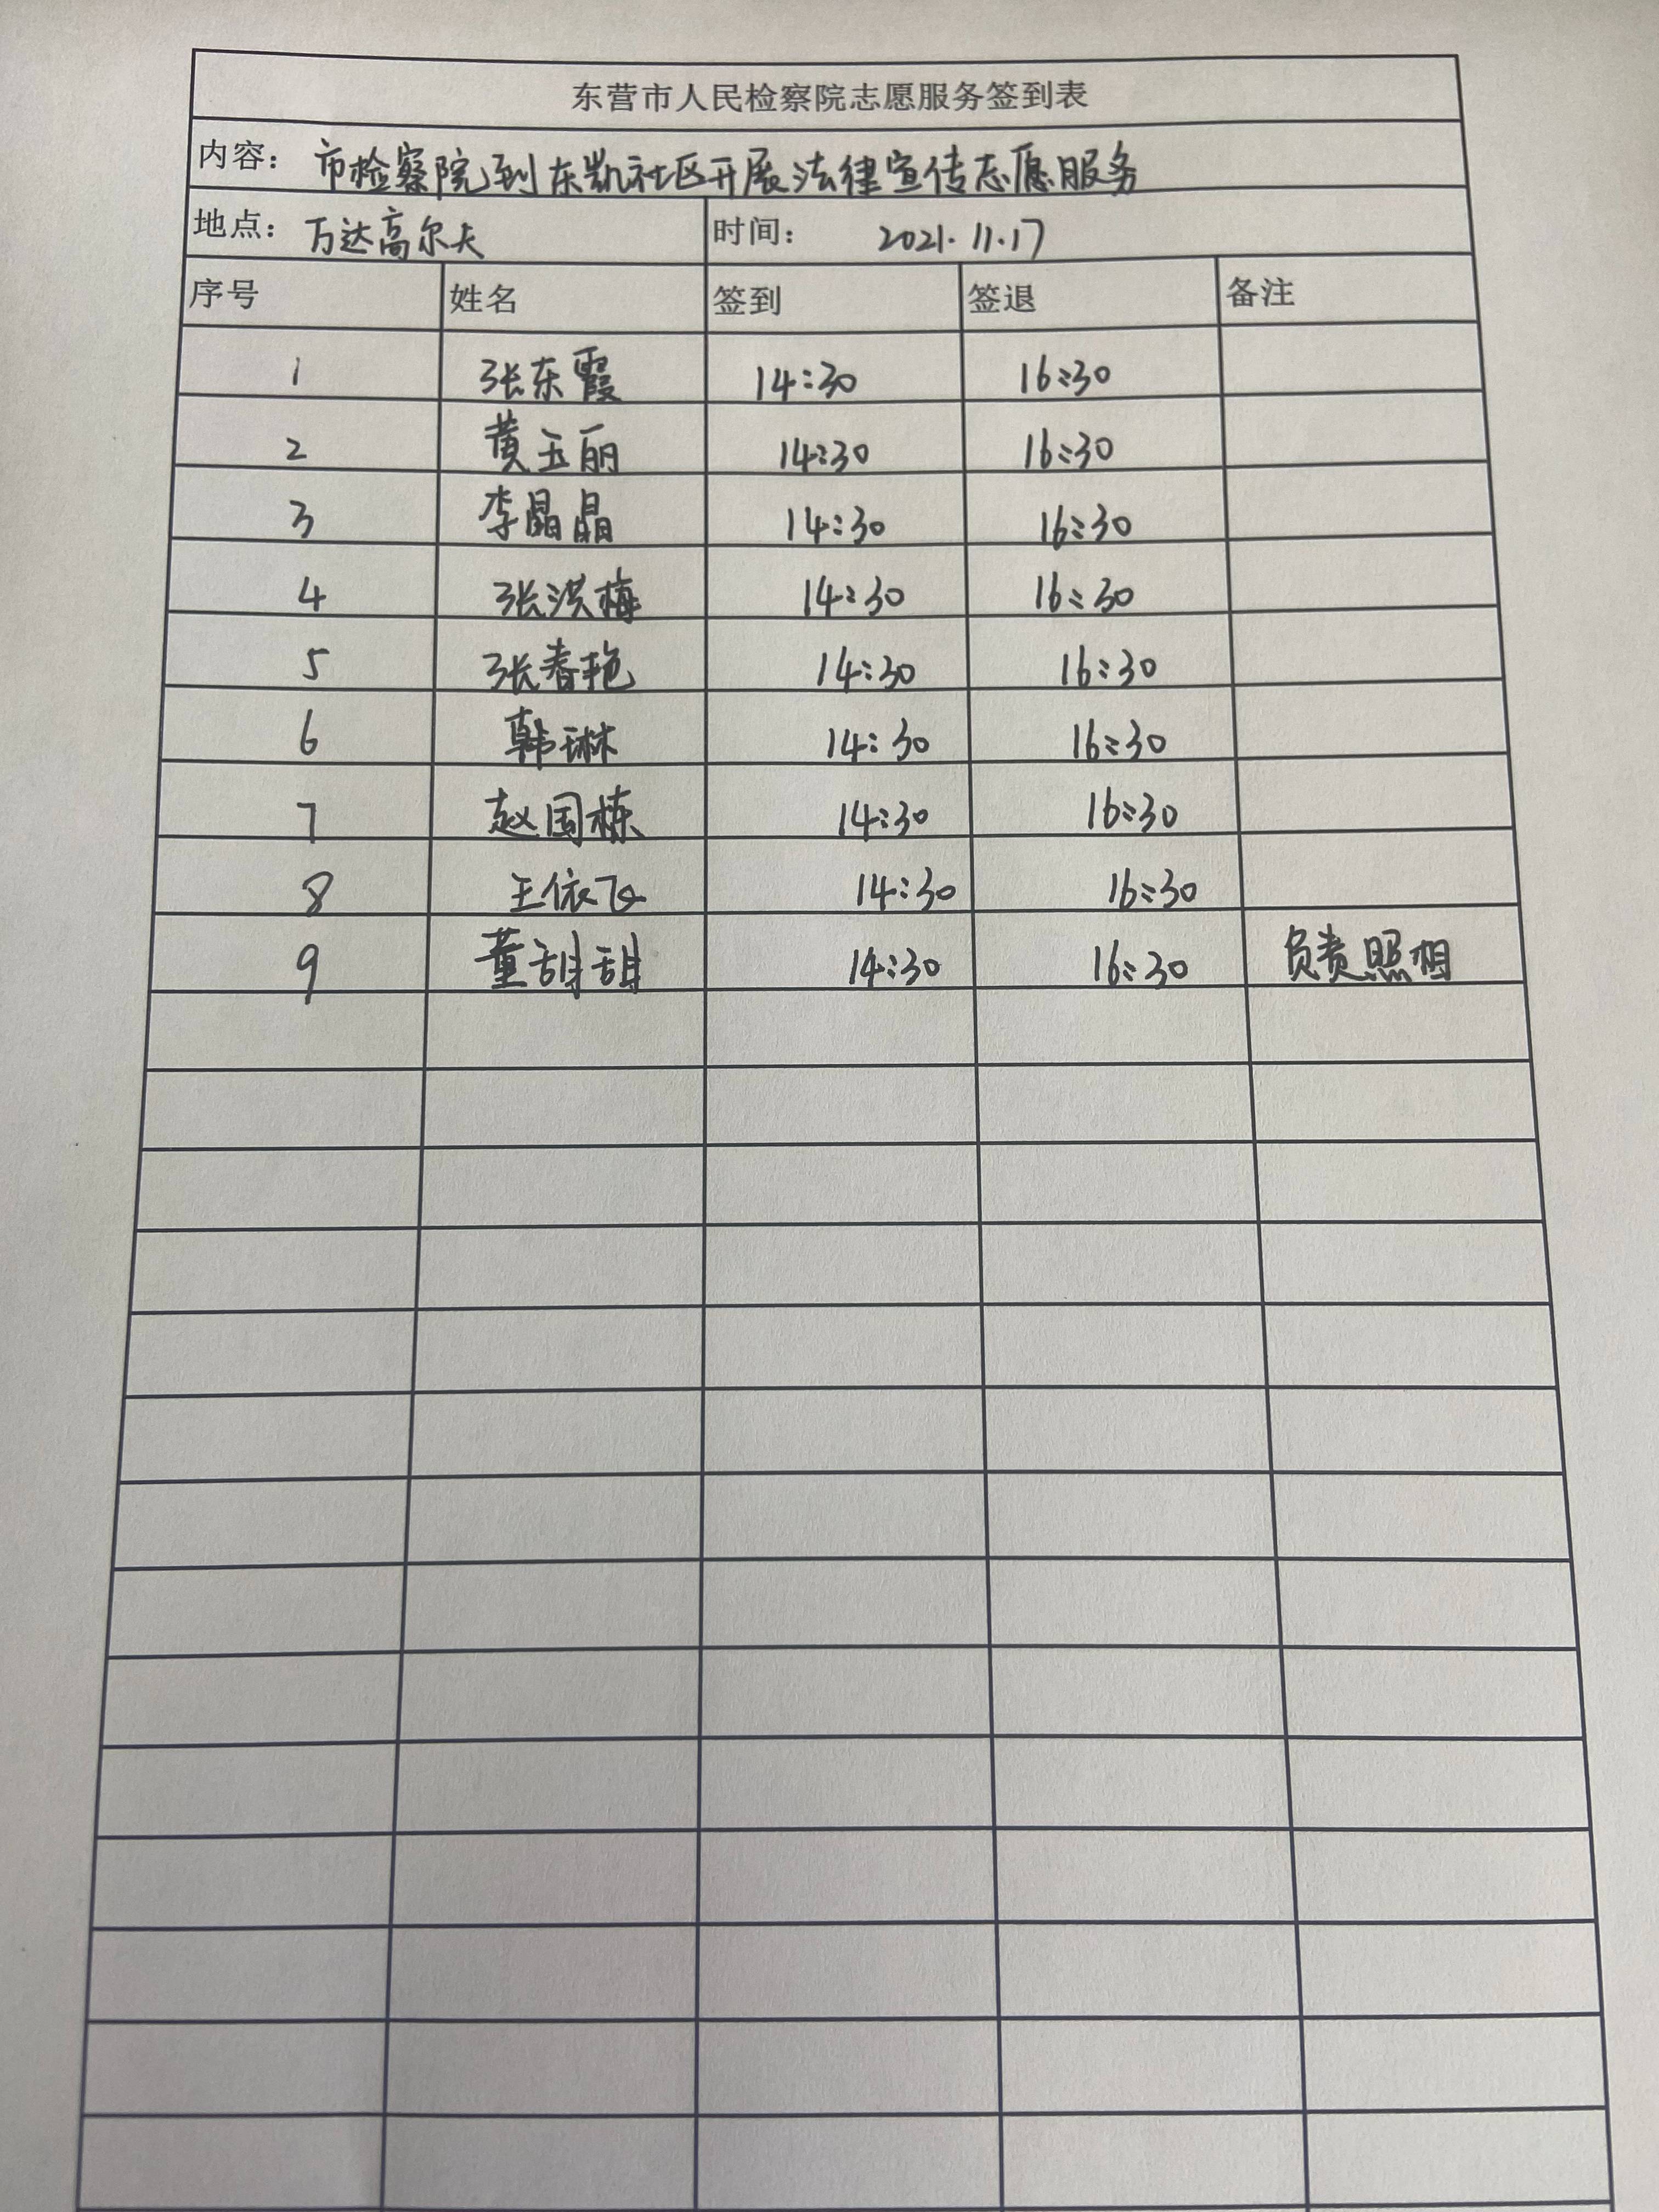 东营市人民检察院志愿服务签到表
内容：市检察院到东凯社区开展法律宣传志愿服务
地点：万达高尔夫 时间：2021.11.17
序号 姓名 签到 签退 备注
1 张东霞 14:30 16:30
2 黄玉丽 14:30 16:30
3 李晶晶 14:30 16:30
4 张洪梅 14:30 16:30
5 张春艳 14:30 16:30
6 韩琳 14:30 16:30
7 赵国栋 14:30 16:30
8 王依飞 14:30 16:30
9 董甜甜 14:30 16:30 负责照相